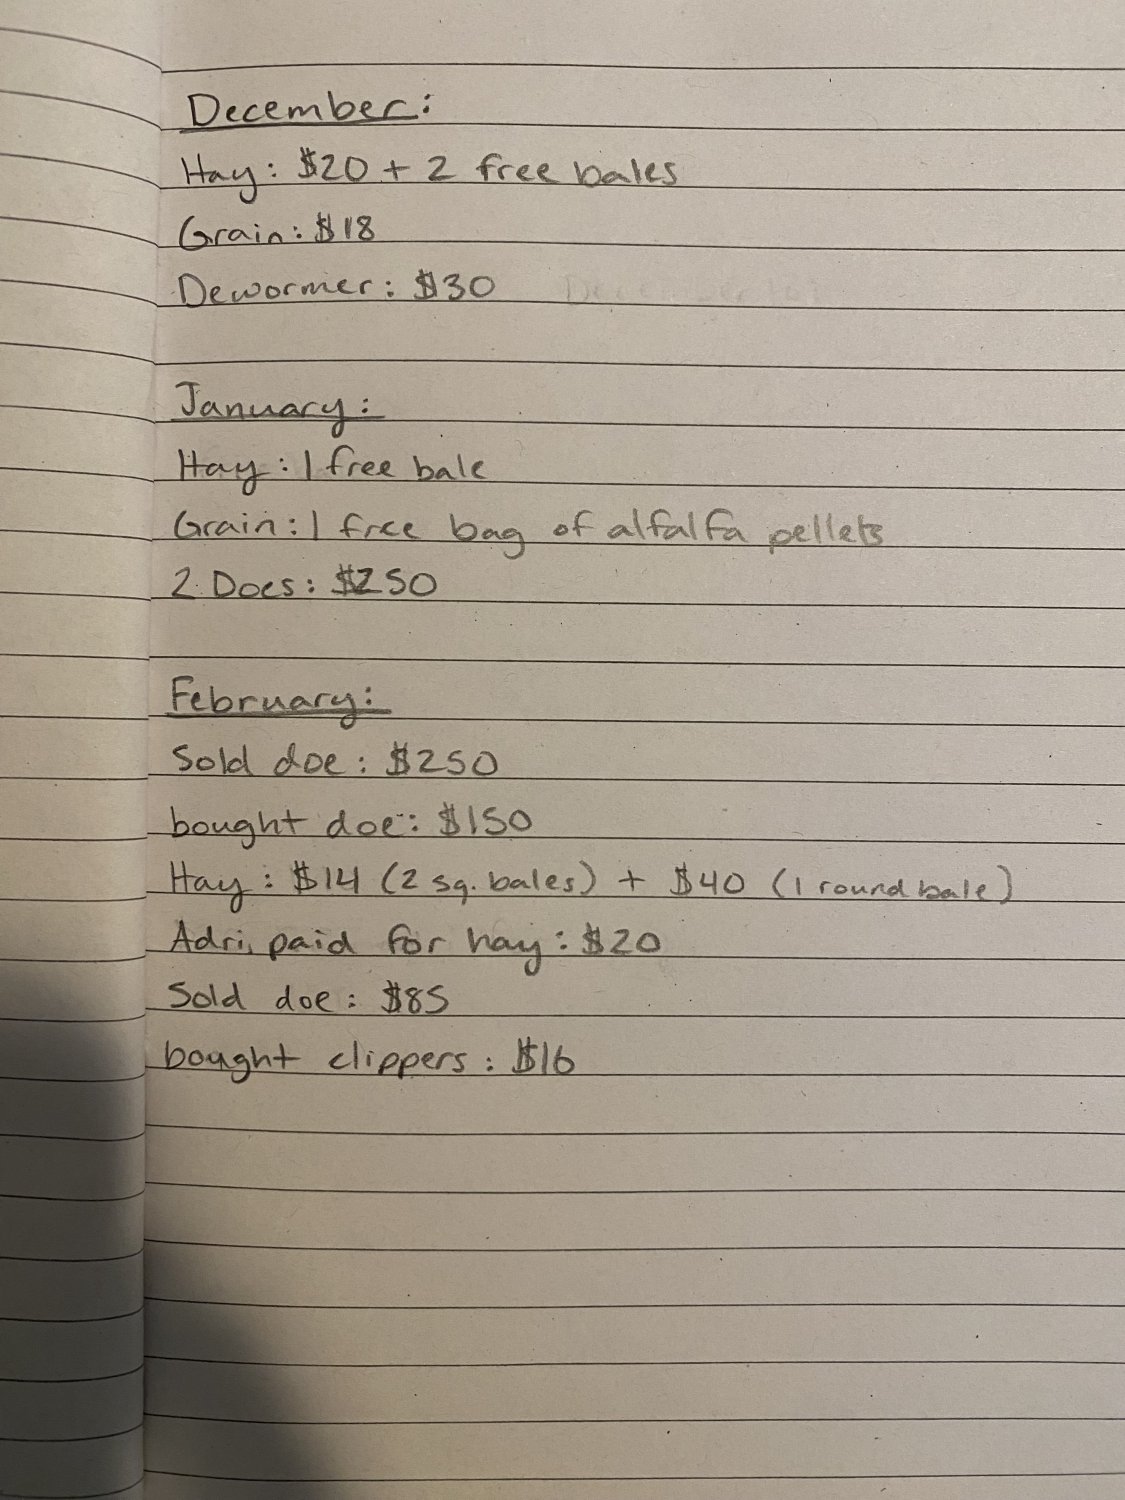 December:
Hay: $20 + 2 free bales
Grain: $18
Dewormer: $30
January:
Hay: 1 free bale
Grain: 1 free bag of alfalfa pellets
2 Does: $250
February:
Sold doe: $250
bought doe: $150
Hay: $14 (2 sq. bales) + $40 (1 round bale)
Adri. paid for hay: $20
Sold doe: $85
bought clippers: $16